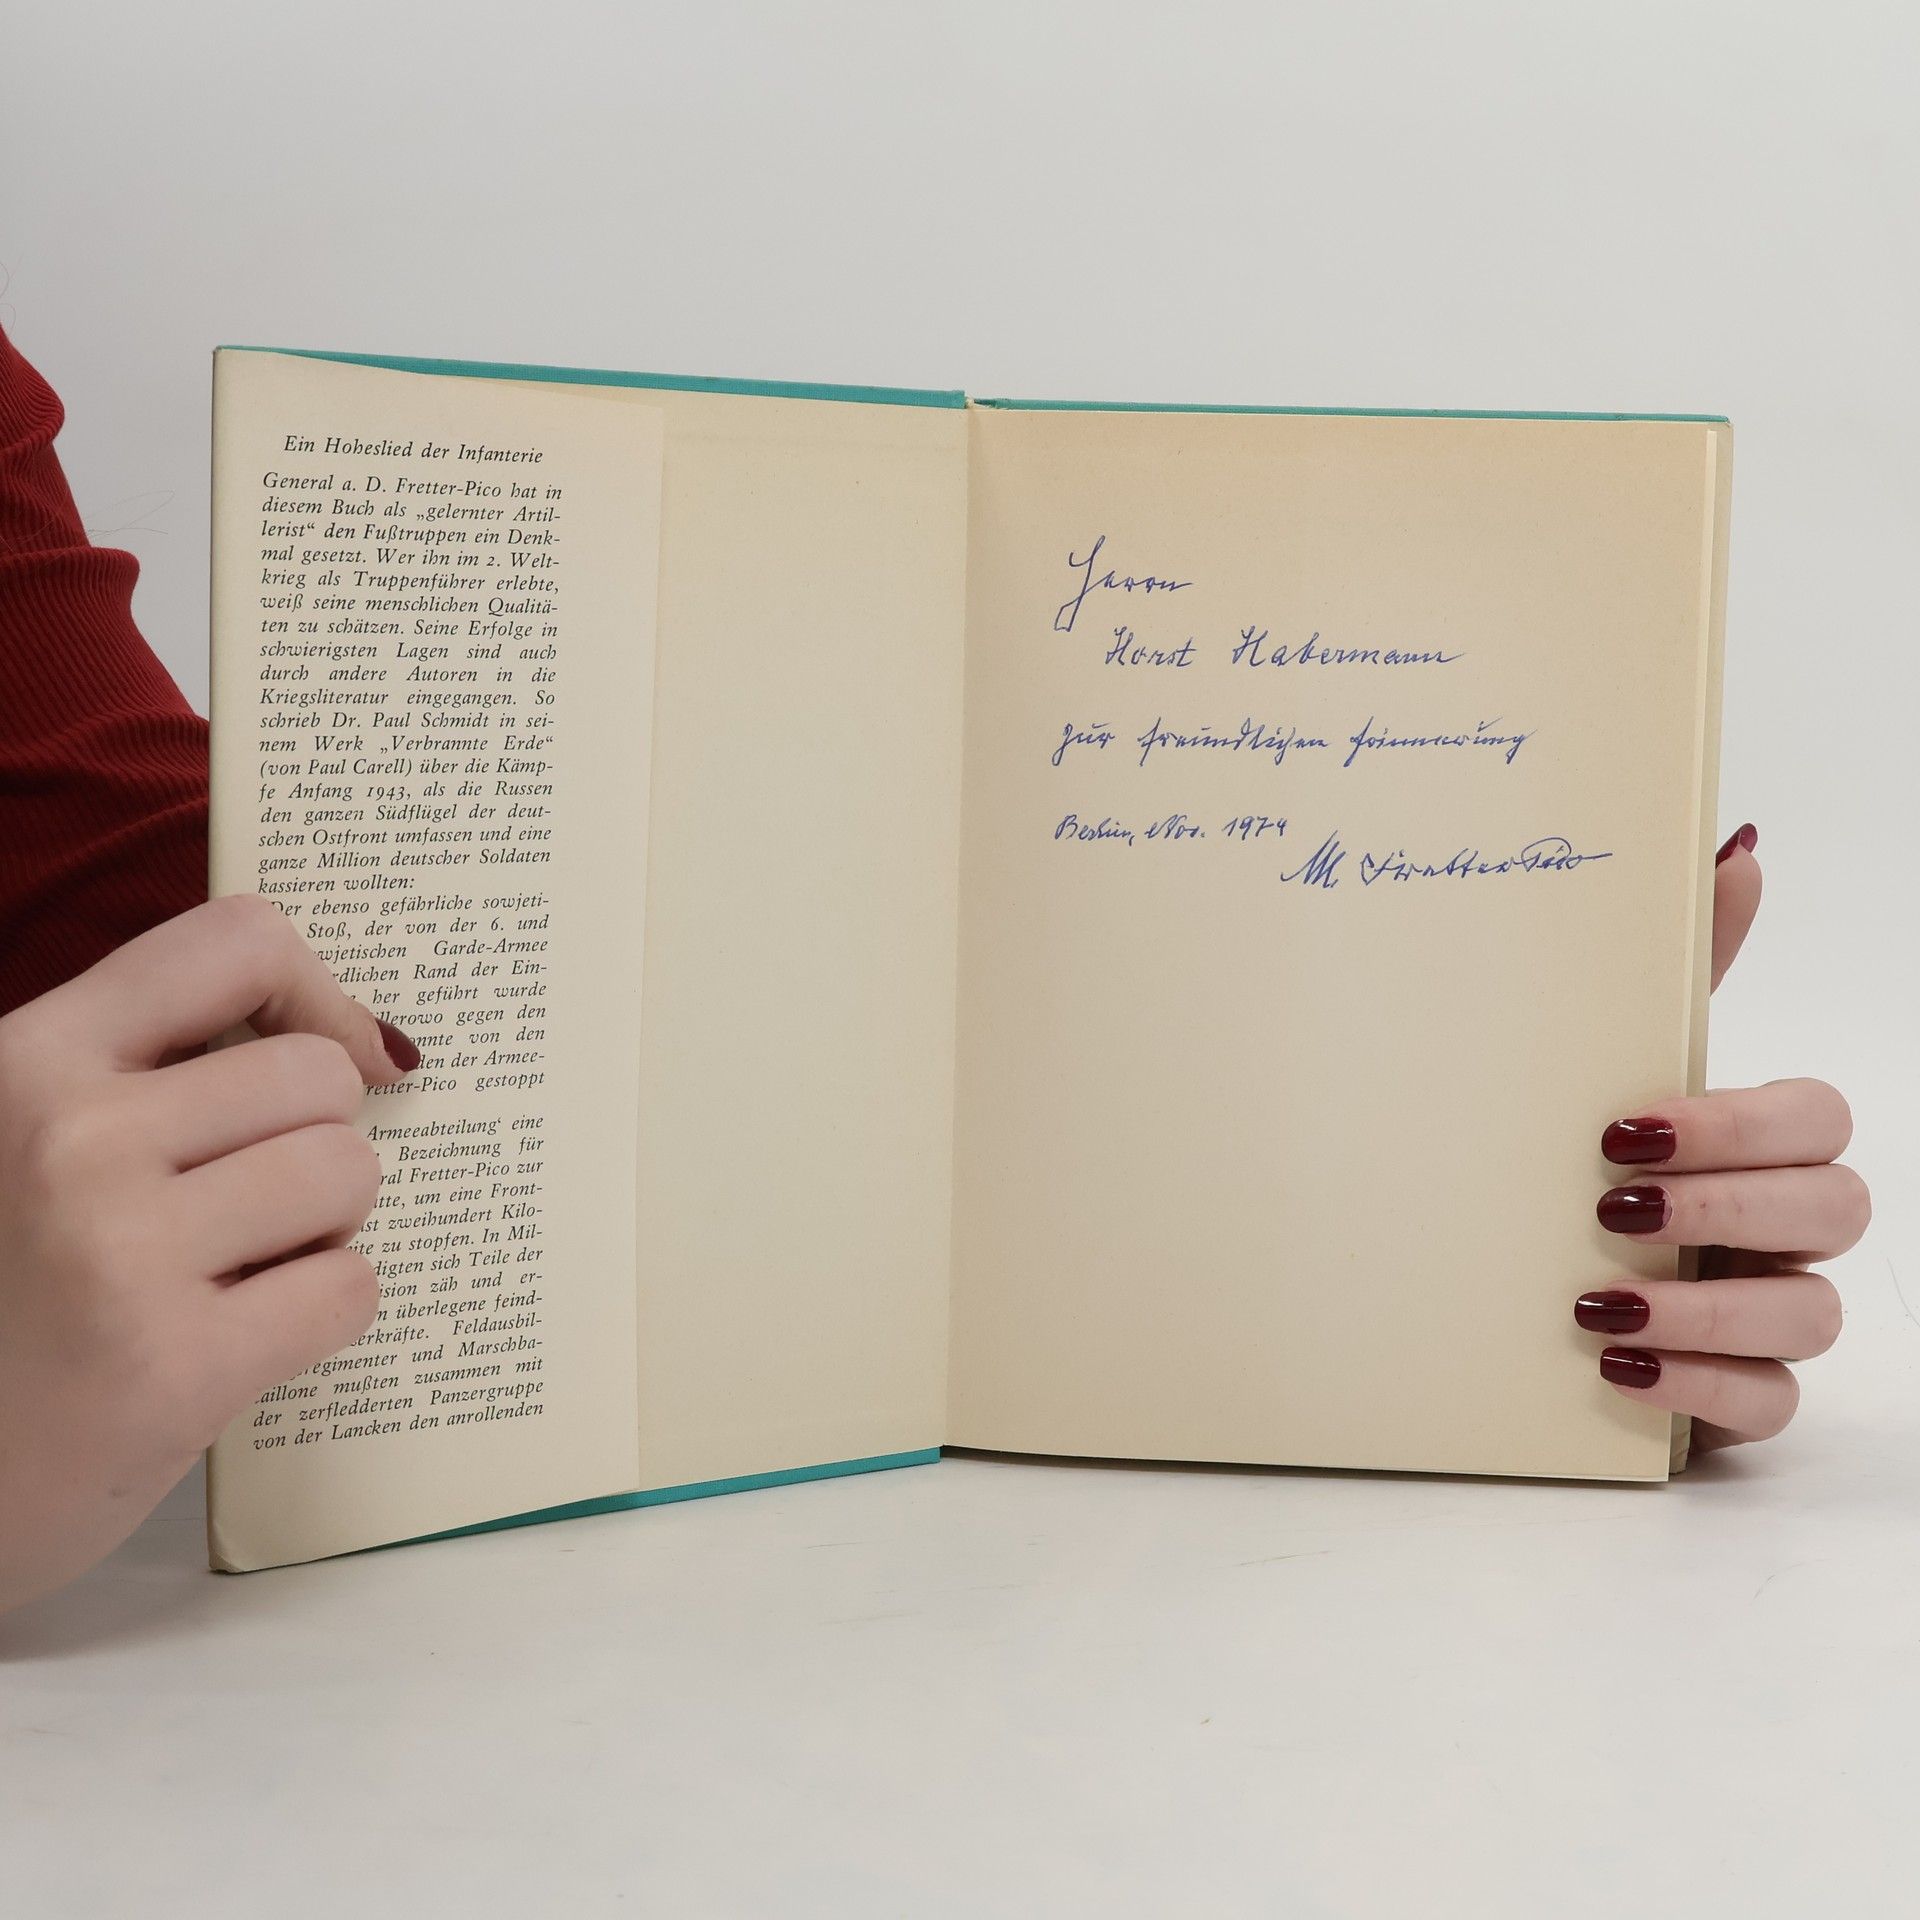 Ein Hoheslied der Infanterie
General a. D. Fretter-Pico hat in
diesem Buch als „gelernter Artil-
lerist“ den Fußtruppen ein Denk-
mal gesetzt. Wer ihn im 2. Welt-
krieg als Truppenführer erlebte,
weiß seine menschlichen Qualitä-
ten zu schätzen. Seine Erfolge in
schwierigsten Lagen sind auch
durch andere Autoren in die
Kriegsliteratur eingegangen. So
schrieb Dr. Paul Schmidt in sei-
nem Werk „Verbrannte Erde“
(von Paul Carell) über die Kämp-
fe Anfang 1943, als die Russen
den ganzen Südflügel der deut-
schen Ostfront umfassen und eine
ganze Million deutscher Soldaten
kassieren wollten:
Der ebenso gefährliche sowjeti-
Stoß, der von der 6. und
wjetischen Garde-Armee
rdlichen Rand der Ein-
her geführt wurde
illerowo gegen den
onnte von den
den der Armee-
retter-Pico gestoppt
Armeeabteilung‘ eine
Bezeichnung für
ral Fretter-Pico zur
tte, um eine Front-
st zweihundert Kilo-
ite zu stopfen. In Mil-
digten sich Teile der
ision zäh und er-
n überlegene feind-
erkräfte. Feldausbil-
regimenter und Marschba-
aillone mußten zusammen mit
der zerfledderten Panzergruppe
von der Lancken den anrollenden
Herrn
Horst Habermann
zur freundlichen Erinnerung
Berlin, Nov. 1974
M. Fretter Pico